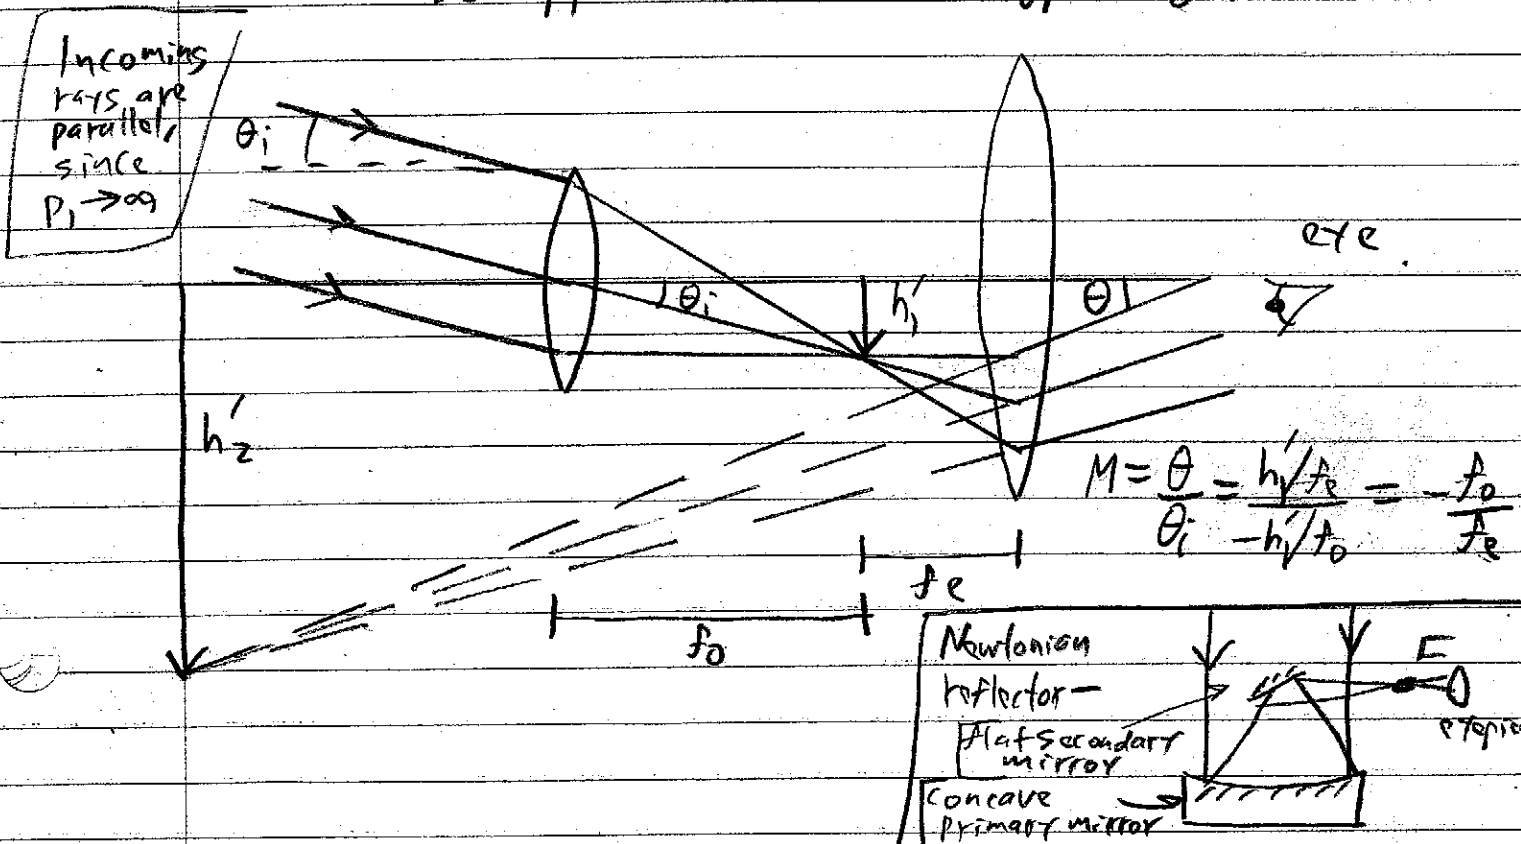 Incoming
rays are
parallel,
since
p₁ → ∞
θᵢ
θᵢ
h₁'
θ
eye
h₂'
M = θ/θᵢ = (h₁'/fₑ)/(-h₁'/f₀) = -f₀/fₑ
fₑ
f₀
Newtonian
reflector—
flat secondary
mirror
concave
primary mirror
F